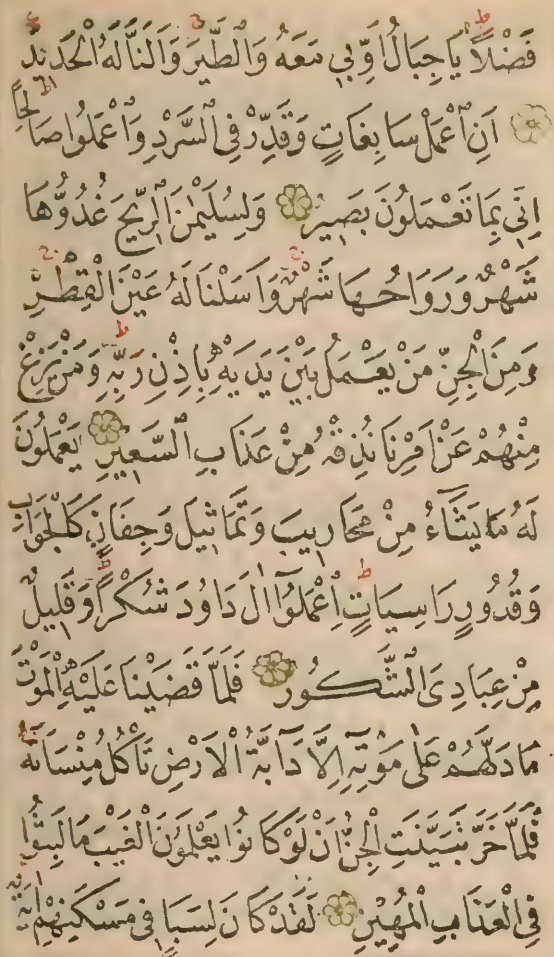 فَضْلًا يَا جِبَالُ أَوِّبِي مَعَهُ وَالطَّيْرَ وَأَلَنَّا لَهُ الْحَدِيدَ
أَنِ اعْمَلْ سَابِغَاتٍ وَقَدِّرْ فِي السَّرْدِ وَاعْمَلُوا صَالِحًا
إِنِّي بِمَا تَعْمَلُونَ بَصِيرٌ وَلِسُلَيْمٰنَ الرِّيحَ غُدُوُّهَا
شَهْرٌ وَرَوَاحُهَا شَهْرٌ وَأَسَلْنَا لَهُ عَيْنَ الْقِطْرِ
وَمِنَ الْجِنِّ مَنْ يَعْمَلُ بَيْنَ يَدَيْهِ بِإِذْنِ رَبِّهِ وَمَنْ يَزِغْ
مِنْهُمْ عَنْ أَمْرِنَا نُذِقْهُ مِنْ عَذَابِ السَّعِيرِ يَعْمَلُونَ
لَهُ مَا يَشَاءُ مِنْ مَحَارِيبَ وَتَمَاثِيلَ وَجِفَانٍ كَالْجَوَابِ
وَقُدُورٍ رَاسِيَاتٍ اعْمَلُوا آلَ دَاوُدَ شُكْرًا وَقَلِيلٌ
مِنْ عِبَادِيَ الشَّكُورُ فَلَمَّا قَضَيْنَا عَلَيْهِ الْمَوْتَ
مَا دَلَّهُمْ عَلٰى مَوْتِهِ إِلَّا دَابَّةُ الْأَرْضِ تَأْكُلُ مِنْسَأَتَهُ
فَلَمَّا خَرَّ تَبَيَّنَتِ الْجِنُّ أَنْ لَوْ كَانُوا يَعْلَمُونَ الْغَيْبَ مَا لَبِثُوا
فِي الْعَذَابِ الْمُهِينِ لَقَدْ كَانَ لِسَبَإٍ فِي مَسْكَنِهِمْ آيَةٌ